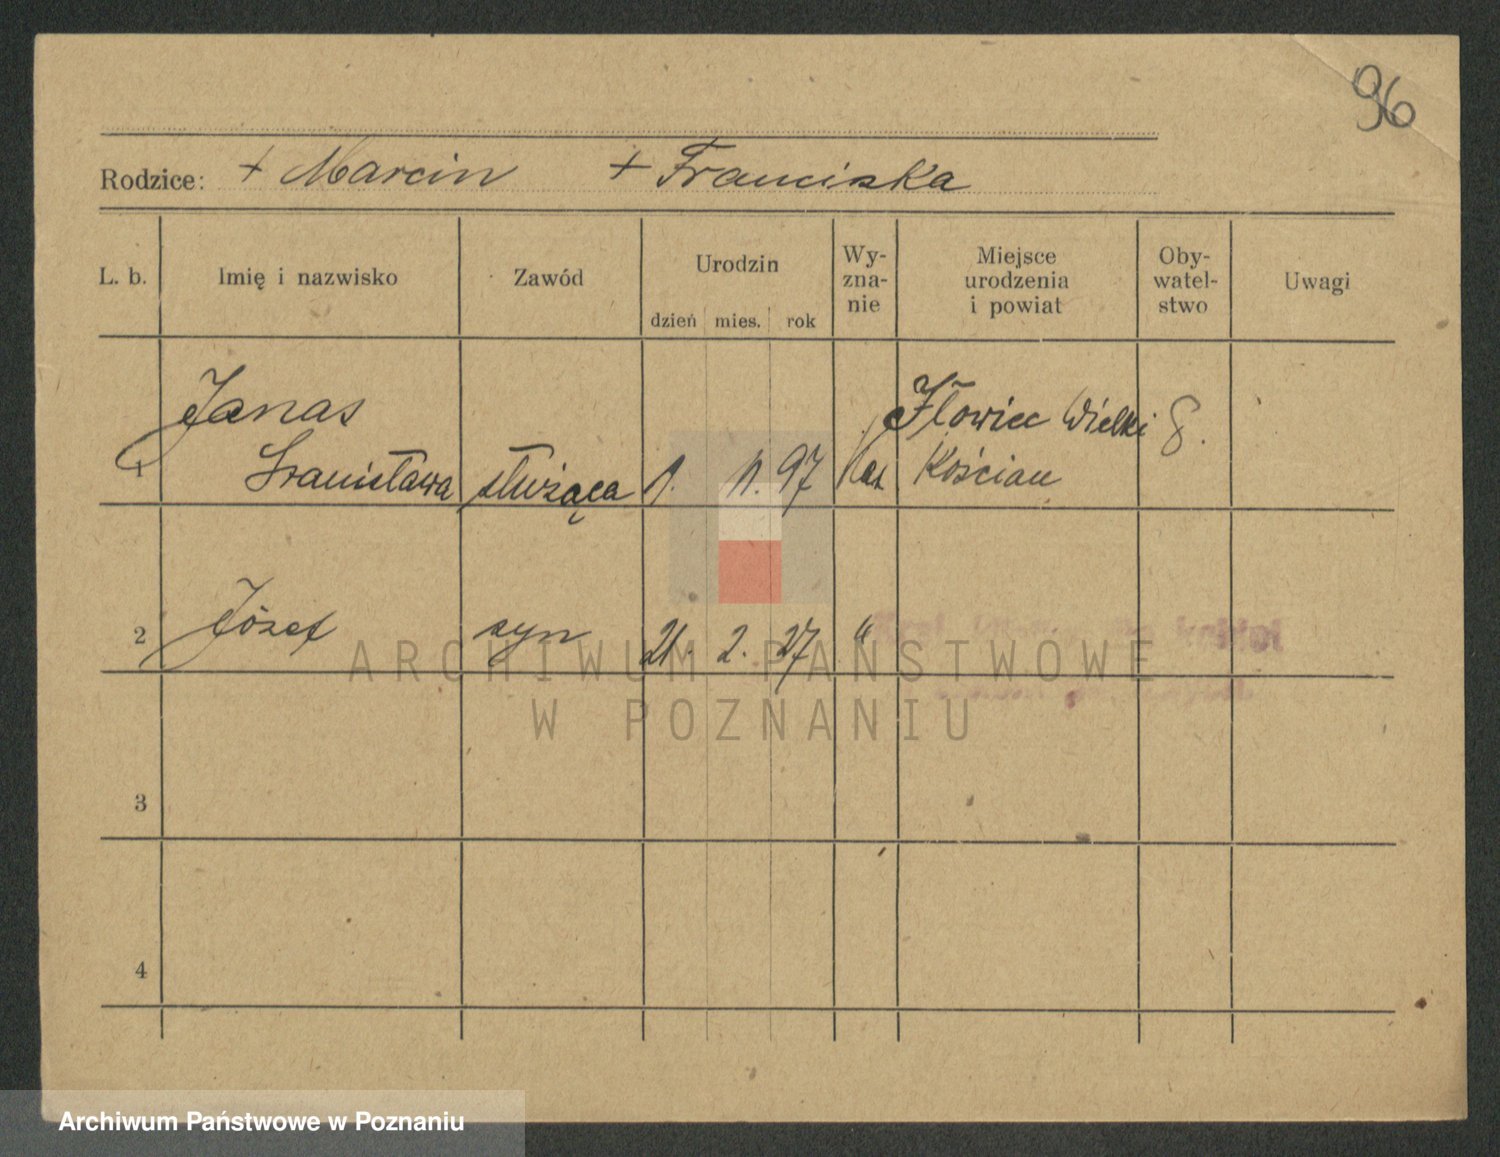 96
Rodzice: + Marcin + Franciszka
L. b. Imię i nazwisko Zawód Urodzin dzień mies. rok Wy-zna-nie Miejsce urodzenia i powiat Oby-watel-stwo Uwagi
Janas Iłowiec Wielki
1 Stanisława służąca 1. 11. 97 Kat Kościan
2 Józef syn 21. 2. 27 "
3
4
ARCHIWUM PAŃSTWOWE
W POZNANIU
Archiwum Państwowe w Poznaniu